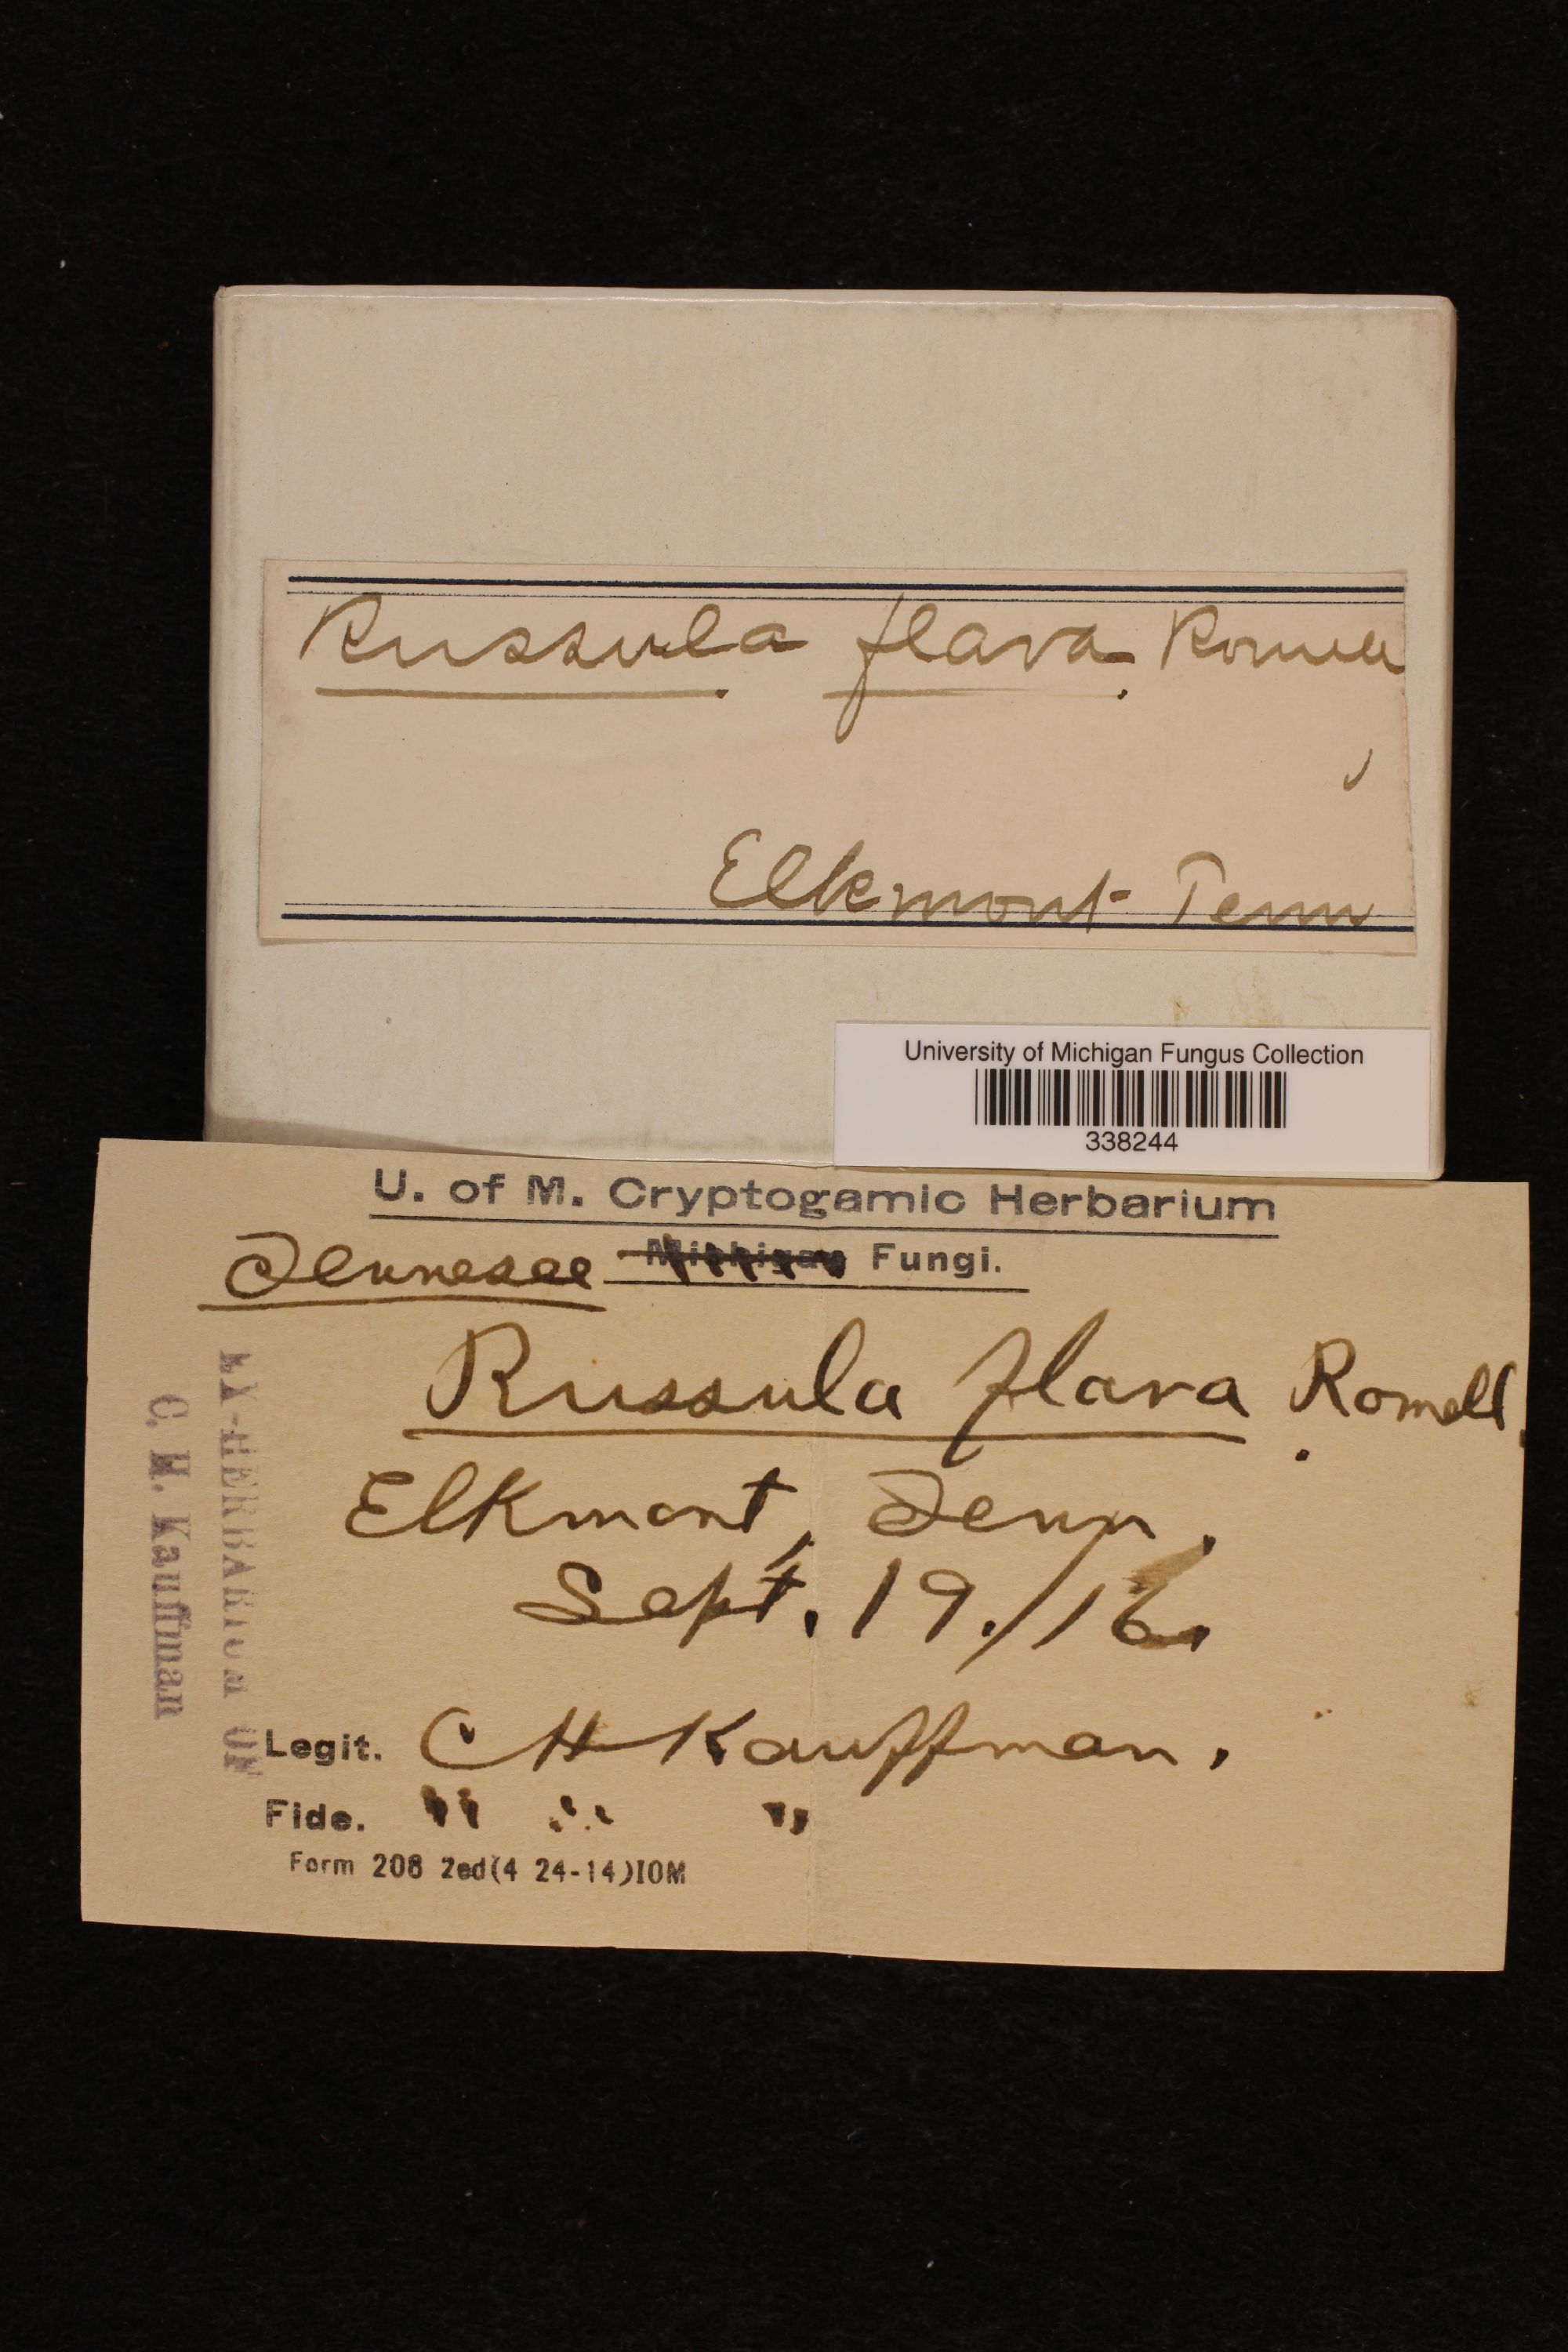 Russula flava Romell
Elkmont Tenn
University of Michigan Fungus Collection
338244
U. of M. Cryptogamic Herbarium
Tennesee Michigan Fungi.
Russula flava Romell.
Elkmont, Tenn.
Sept. 19./16.
EX-HERBARIUM OF
C. H. Kauffman
Legit. C H Kauffman.
Fide. " " "
Form 208 2ed(4 24-14)10M